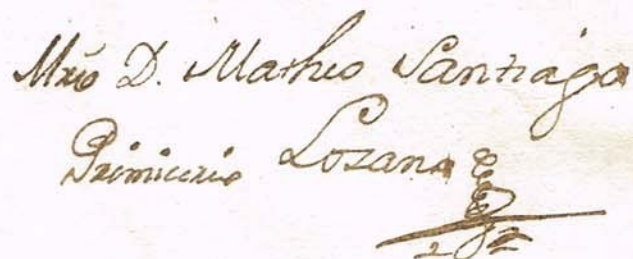 Mrõ D. Matheo Santiago
Primicerio Lozano